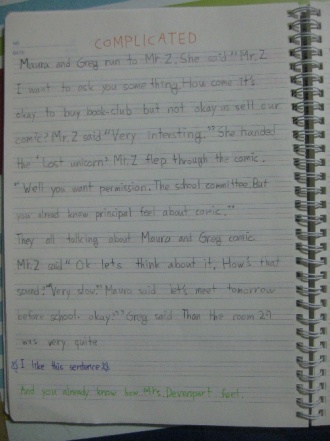 COMPLICATED
Maura and Greg run to Mr.Z. She said "Mr.Z
I want to ask you something. How come it's
okay to buy book-club but not okay us sell our
comic? Mr.Z said "Very intersting." She handed
the "Lost unicorn" Mr.Z flep through the comic.
"Well you want permission. The school committee. But
you alread know principal feel about comic."
They all talking about Maura and Greg comic.
Mr.Z said "Ok lets think about it, How's that
sound?" "Very slow." Maura said let's meet tomorrow
before school okay?" Greg said Than the room 27
was very quite
I like this sentence
And you already know how Mrs. Devonport feel.